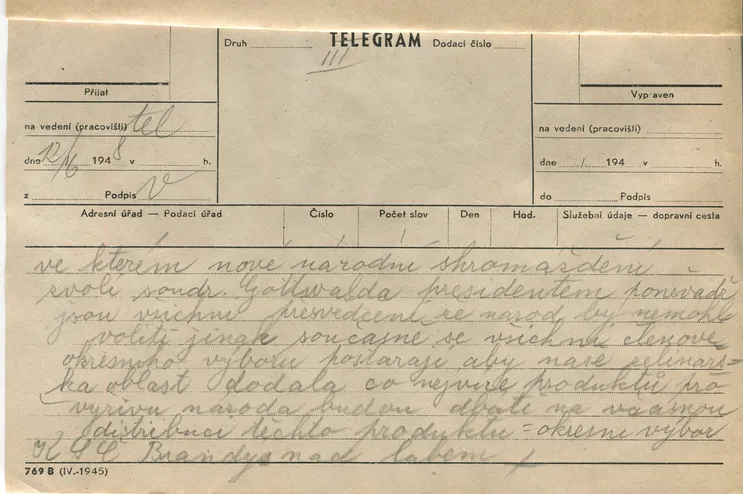 Druh TELEGRAM Dodací číslo
III
Přijat Vypraven
na vedení (pracovišti) tel na vedení (pracovišti)
dne 12/6 1948 v h. dne / 194 v h.
z Podpis do Podpis
Adresní úřad — Podací úřad Číslo Počet slov Den Hod. Služební údaje — dopravní cesta
ve kterém nové národní shromáždění
zvolí soudr. Gottwalda presidentem poněvadž
jsou všichni přesvědčeni že národ by nemohl
voliti jinak současně se všichni členové
okresního výboru postarají aby naše zelinářs=
ká oblast dodala co nejvíce produktů pro
výživu národa budou dbáti na
distribuci těchto produktů = okresní výbor
KSČ Brandýs nad labem +
769 B (IV.-1945)